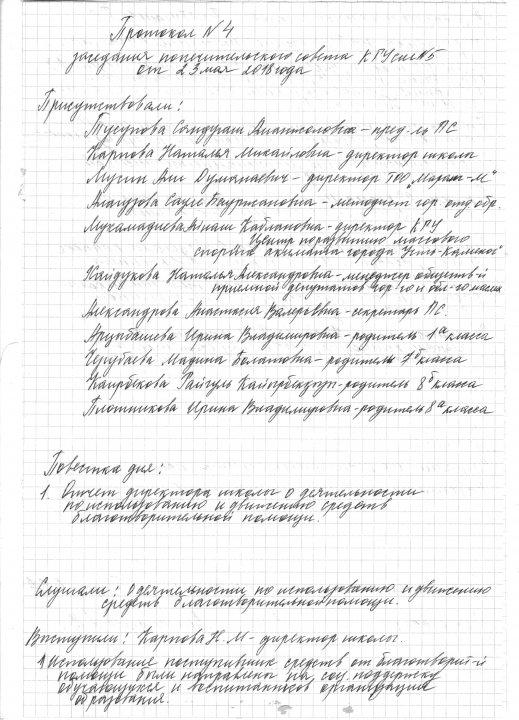 Протокол №4
заседания попечительского совета КГУ сш №5
от 23 мая 2018 года
Присутствовали:
Тусупова Сандугаш Анатоловна - пред-ль ПС
Карпова Наталья Михайловна - директор школы
Мусин Али Думанаевич - директор ТОО „Марат-М"
Сауле Бауржановна - методист гор. отд. обр.
Мухамадиева Каблановна - директор КГУ
Центр по развитию массового
спорта акимата города Усть-Каменог"
Кайдукова Наталья Александровна - менеджер обществ-й
приемной депутатов гор-го и обл-го масл
Александрова Анастасия Валерьевна - секретарь ПС.
Ирина Владимировна - родитель 1 а класса
Мадина Болатовна - родитель 7 класса
Каирбекова Райгуль - родитель 8 б класса
Плотникова Ирина Владимировна - родитель 8 а класса
Повестка дня:
1. Отчет директора школы о деятельности
по использованию и движению средств
благотворительной помощи.
Слушали: о деятельности по использованию и движению
средств благотворительной помощи.
Выступили: Карпова Н.М - директор школы.
1 Использование поступивших средств от благотворит-й
помощи были направлены на соц. поддержку
обучающихся и воспитанников организации
образования.